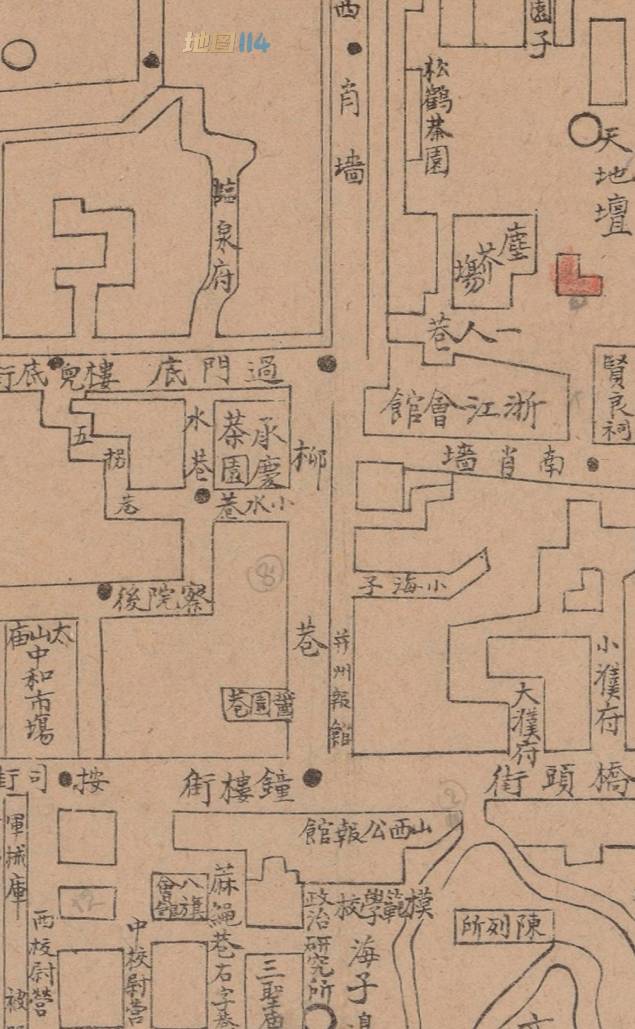 地图114
西肖墙
園子
松鶴茶園
天地壇
臨泉府
塵芥場
一人巷
過門底
樓兒底街
浙江會館
賢良祠
五拐巷
水巷
承慶茶園
柳巷
南肖墙
小水巷
小海子
察院後
太山庙
中和市塲
醬園巷
并州報館
小濮府
大濮府
按司街
鐘樓街
橋頭街
山西公報館
軍械庫
八旗會館
蔴繩巷
右字巷
政治研究所
模範學校
陳列所
西校尉營
中校尉營
三聖庙
海子邊
被